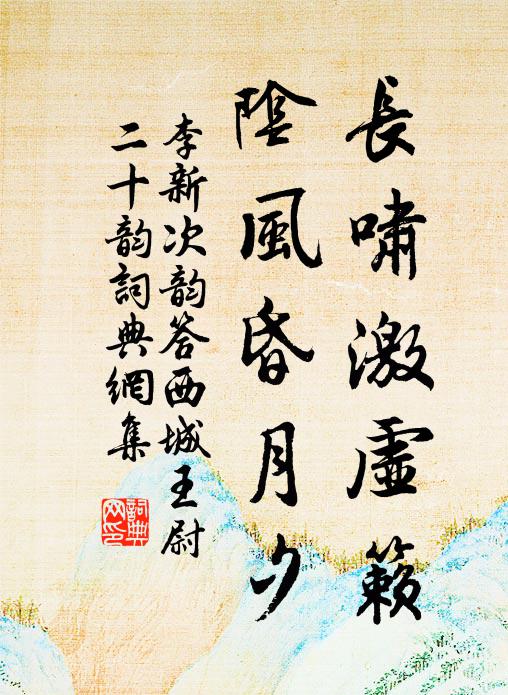 長嘯激虛籟
陰風昏月夕
李新次韵答西城王尉
二十韵詞典網集
詞典网印